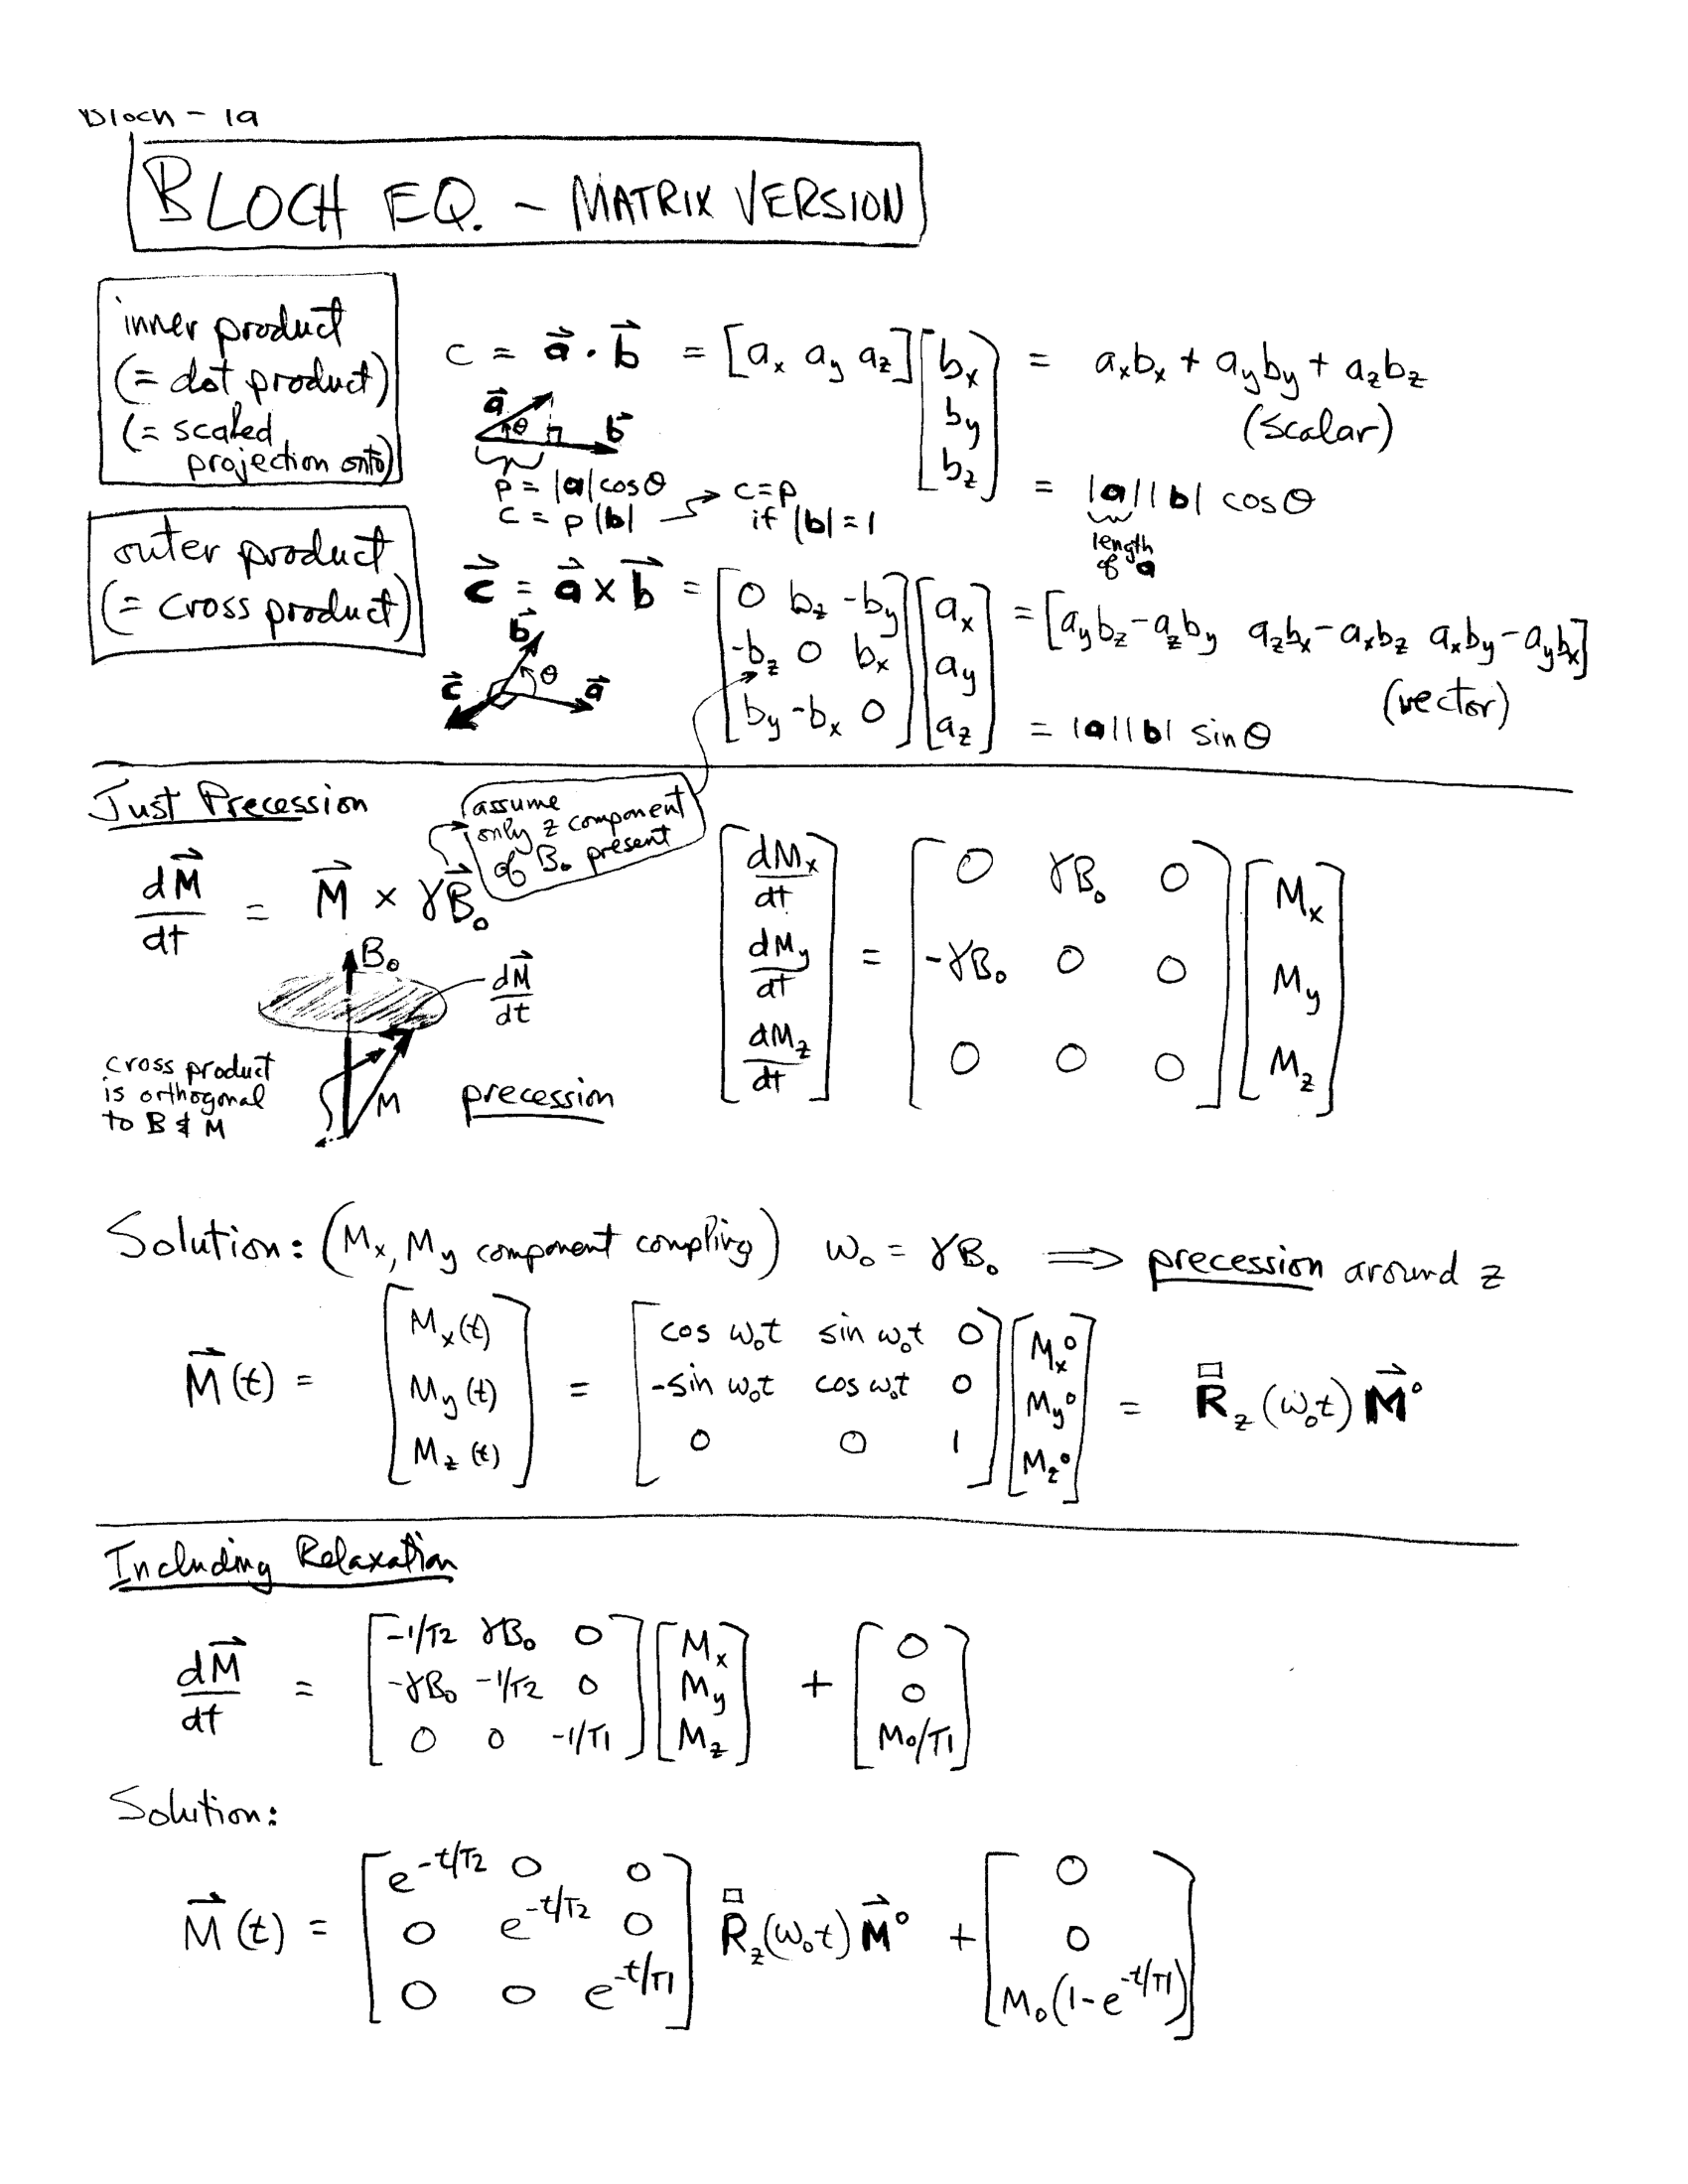 Bloch - 1a
BLOCH EQ. - MATRIX VERSION
inner product
(= dot product)
(= scaled
projection onto)
c = a⃗ · b⃗ = [a_x a_y a_z] [b_x b_y b_z] = a_x b_x + a_y b_y + a_z b_z
(scalar)
a⃗ θ b⃗
p = |a| cos θ
c = p |b| → c = p
if |b| = 1
= |a| |b| cos θ
length
of a
outer product
(= cross product)
c⃗ = a⃗ × b⃗ = [0 b_z -b_y; -b_z 0 b_x; b_y -b_x 0] [a_x a_y a_z] = [a_y b_z - a_z b_y a_z b_x - a_x b_z a_x b_y - a_y b_x]
(vector)
b⃗ θ c⃗ a⃗
= |a| |b| sin θ
Just Precession
assume
only z component
of B₀ present
dM⃗/dt = M⃗ × γB⃗₀
[dM_x/dt; dM_y/dt; dM_z/dt] = [0 γB₀ 0; -γB₀ 0 0; 0 0 0] [M_x; M_y; M_z]
B₀
dM⃗/dt
cross product
is orthogonal
to B & M
M
precession
Solution: (M_x, M_y component coupling) ω₀ = γB₀ ⟹ precession around z
M⃗(t) = [M_x(t); M_y(t); M_z(t)] = [cos ω₀t sin ω₀t 0; -sin ω₀t cos ω₀t 0; 0 0 1] [M_x⁰; M_y⁰; M_z⁰] = R_z(ω₀t) M⃗⁰
Including Relaxation
dM⃗/dt = [-1/T2 γB₀ 0; -γB₀ -1/T2 0; 0 0 -1/T1] [M_x; M_y; M_z] + [0; 0; M₀/T1]
Solution:
M⃗(t) = [e^-t/T2 0 0; 0 e^-t/T2 0; 0 0 e^-t/T1] R_z(ω₀t) M⃗⁰ + [0; 0; M₀(1-e^-t/T1)]